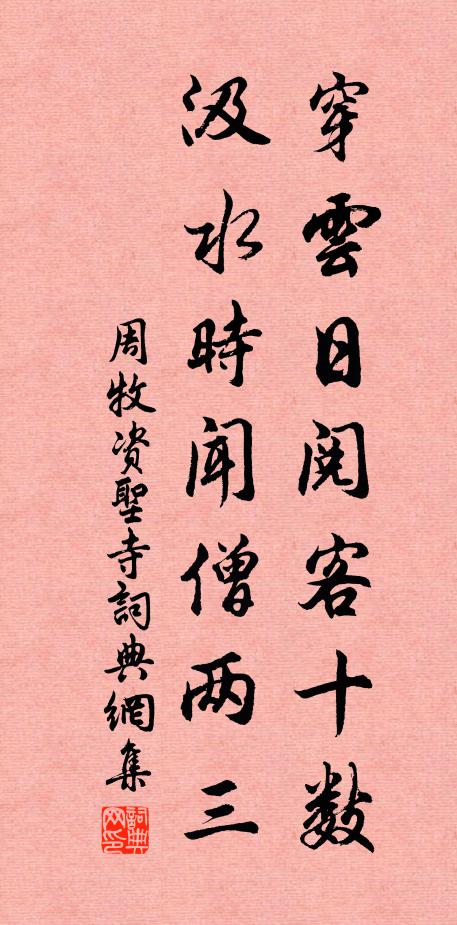 穿雲日閱客十數
汲水時聞僧两三
周牧資聖寺詞典網集
詞典网印